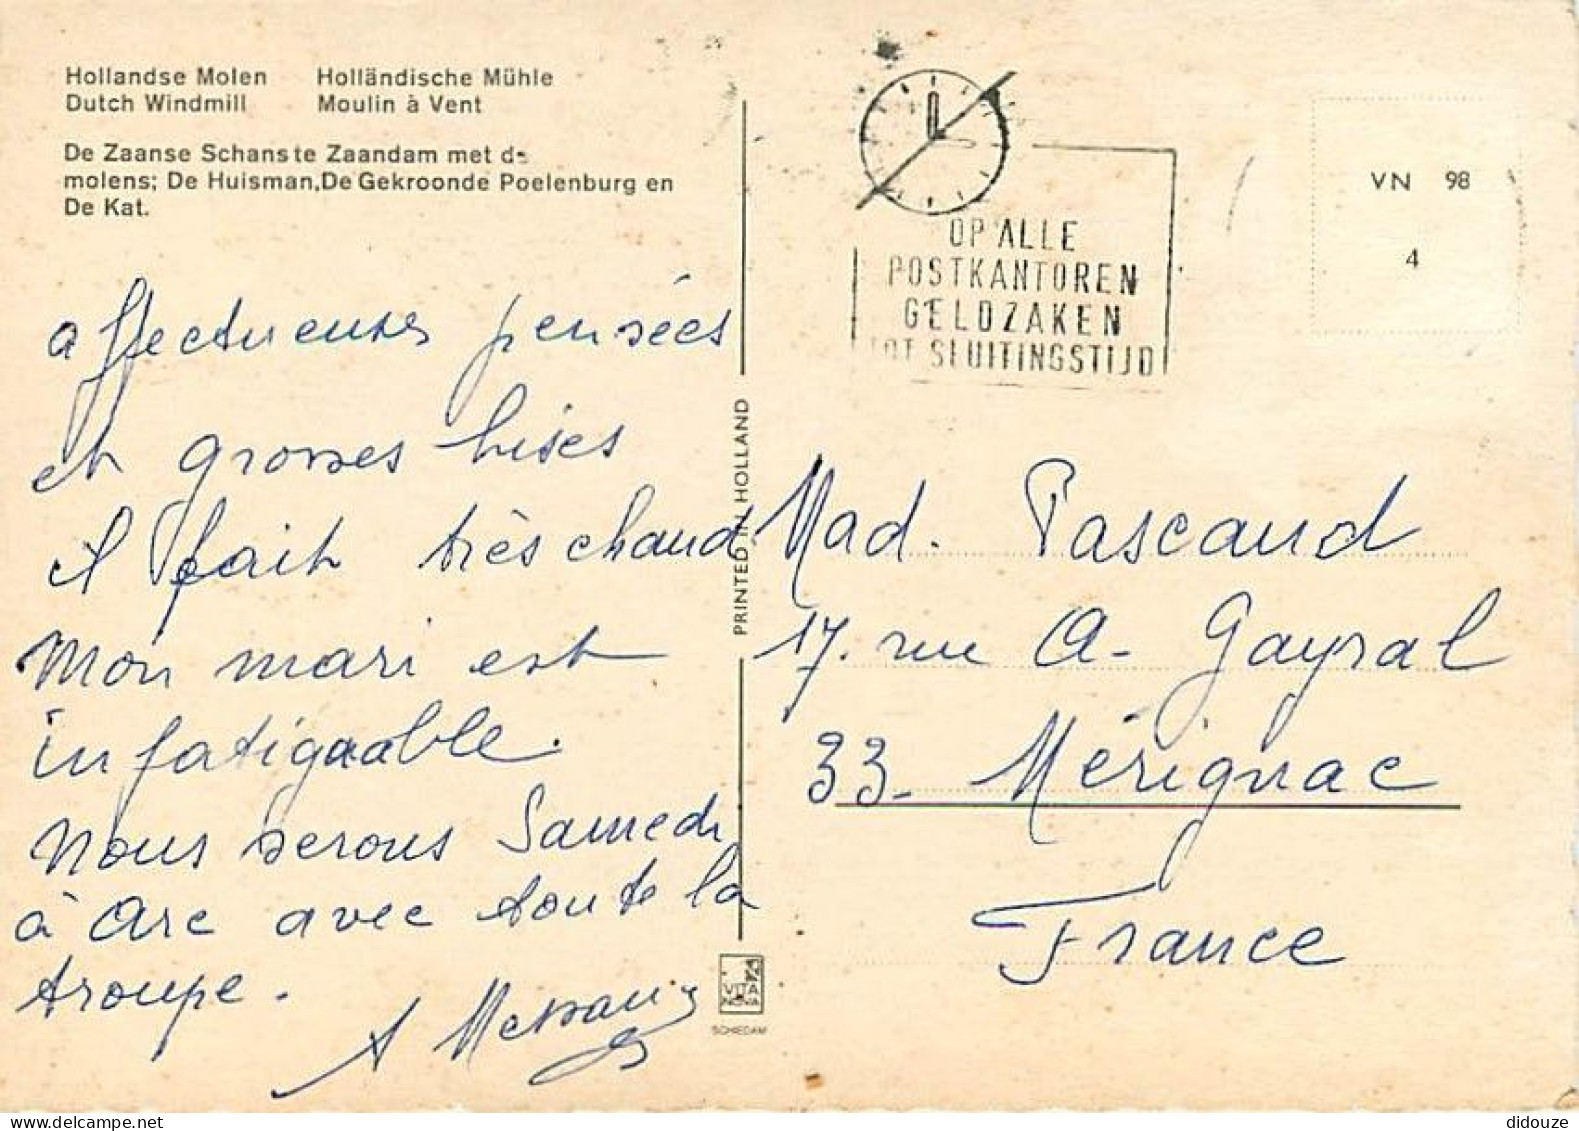 Hollandse Molen Holländische Mühle
Dutch Windmill Moulin à Vent
De Zaanse Schans te Zaandam met de
molens; De Huisman, De Gekroonde Poelenburg en
De Kat.
affectueuses pensées
et grosses bises
il fait très chaud
Mon mari est
infatigable.
Nous serons Samedi
à Arc avec toute la
troupe.
PRINTED IN HOLLAND
VITA
NOVA
SCHIEDAM
OP ALLE
POSTKANTOREN
GELDZAKEN
TOT SLUITINGSTIJD
VN 98
4
Mad. Pascaud
17. rue A. Gayral
33. Mérignac
France
didouze